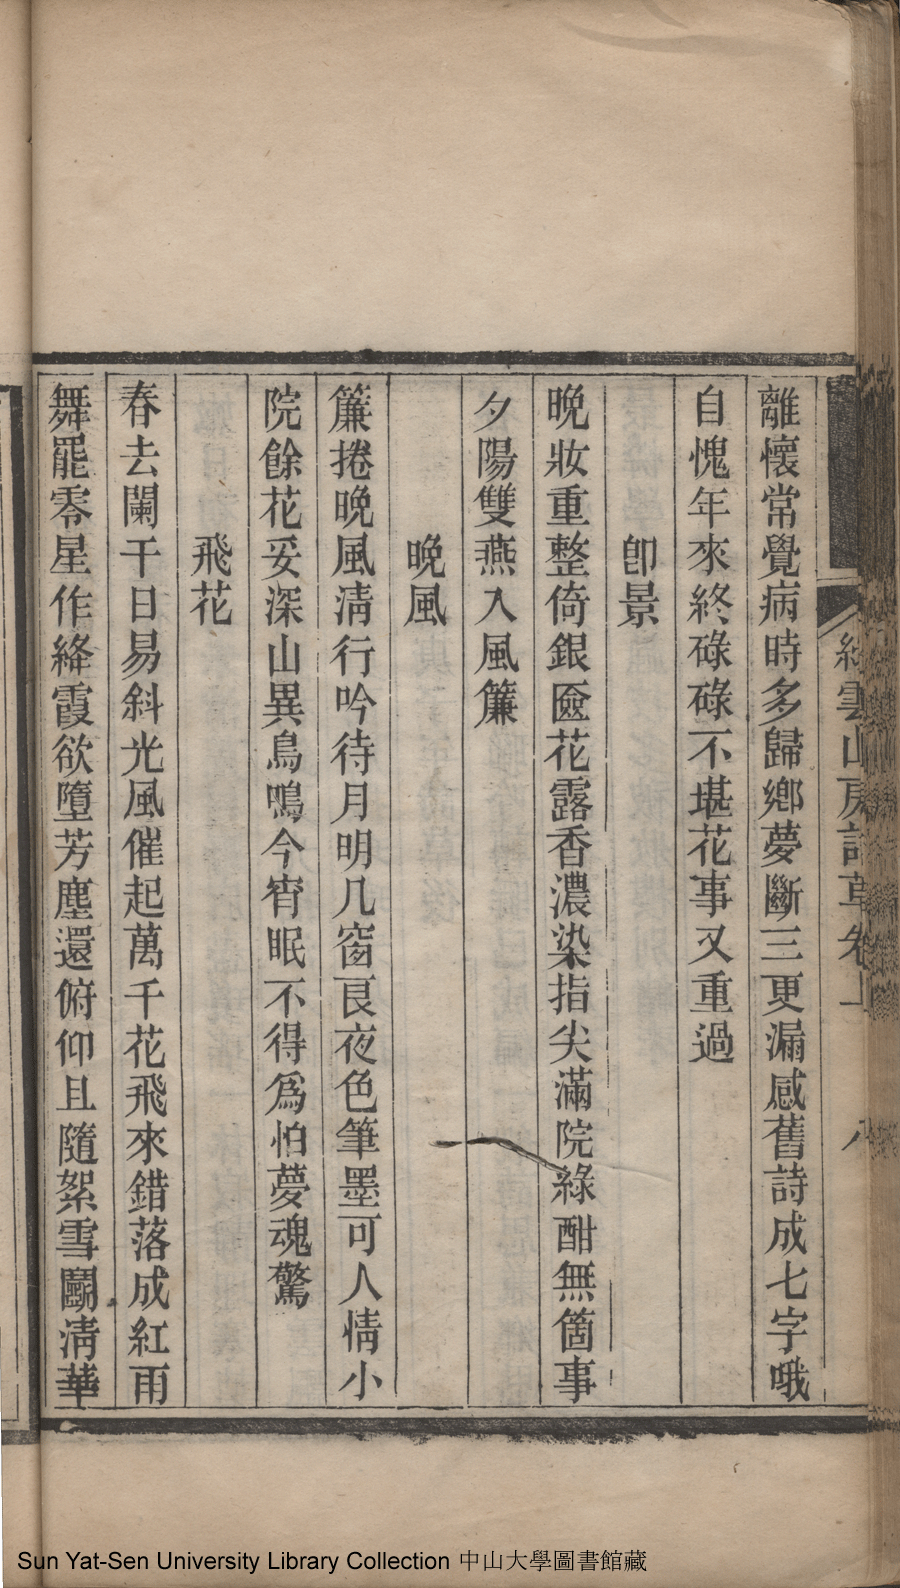 離懷常覺病時多歸鄉夢斷三更漏感舊詩成七字哦
自愧年來終碌碌不堪花事又重過
卽景
晩妝重整倚銀匳花露香濃染指尖滿院綠酣無箇事
夕陽雙燕入風簾
晩風
簾捲晩風淸行吟待月明几窗良夜色筆墨可人情小
院餘花妥深山異鳥鳴今宵眠不得爲怕夢魂驚
飛花
春去闌干日易斜光風催起萬千花飛來錯落成紅雨
舞罷零星作絳霞欲墮芳塵還俯仰且隨絮雪鬭淸華
Sun Yat-Sen University Library Collection 中山大學圖書館藏